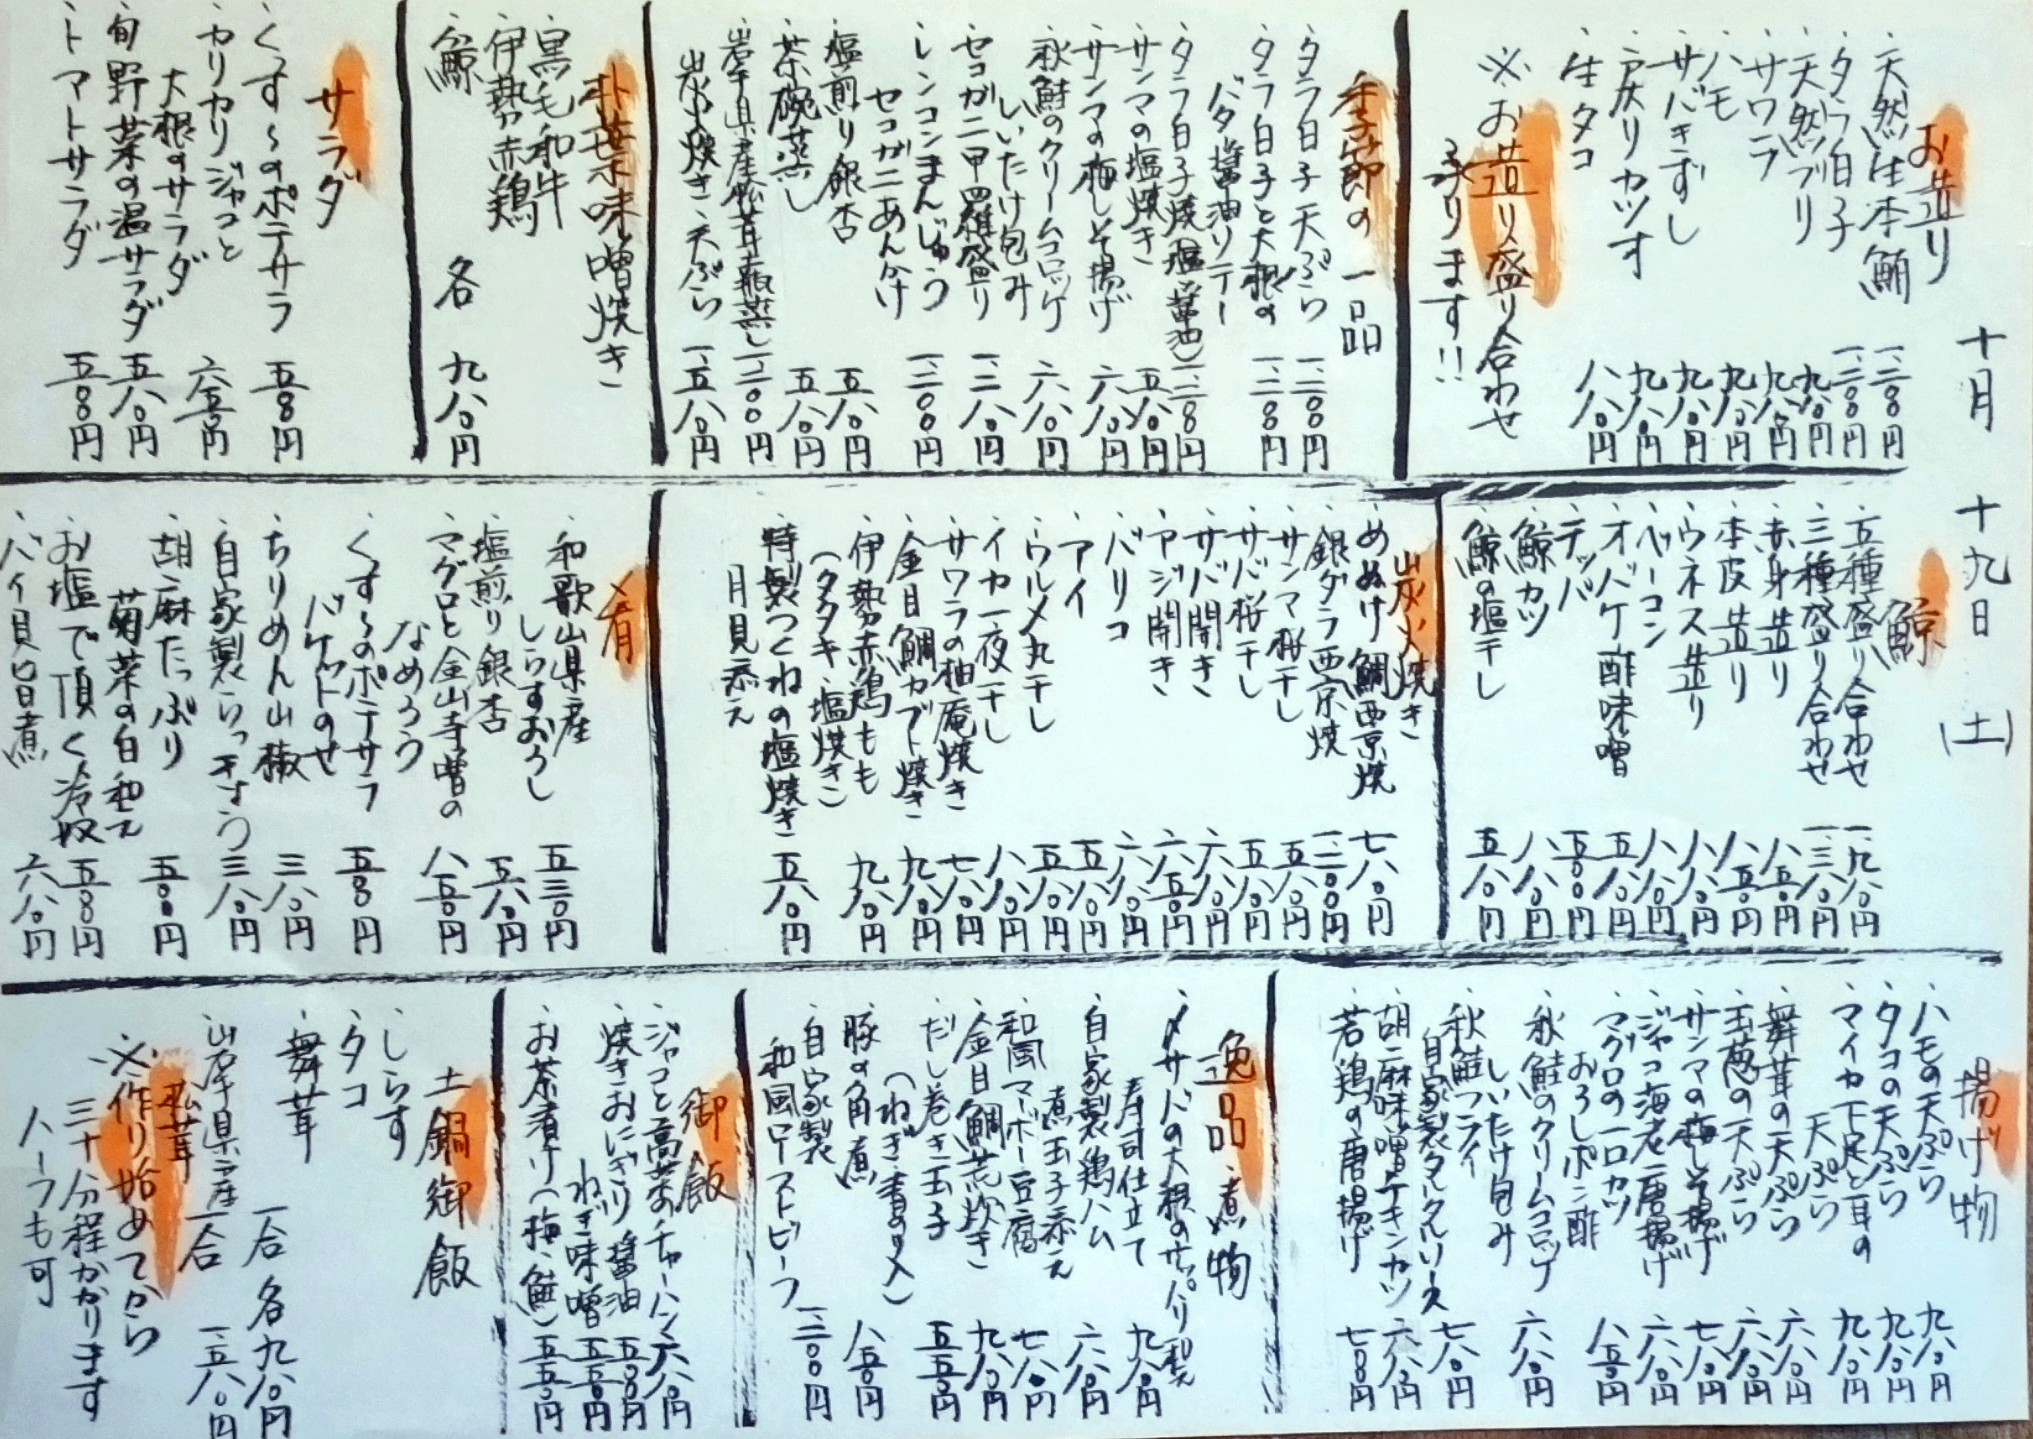 十月 十九日 (土)
お造り
・天然生本鮪 一、二〇〇円
・タラ白子 一、二〇〇円
・天然ブリ 九八〇円
・サワラ 九八〇円
・ハモ 九八〇円
・サバきずし 九八〇円
・戻りカツオ 九八〇円
・生タコ 八八〇円
※お造り盛り合わせ
承ります!!
季節の一品
・タラ白子天ぷら 一、二〇〇円
・タラ白子と大根の
バタ醤油ソテー 一、二〇〇円
・タラ白子焼(塩・醤油) 一、二〇〇円
・サンマの塩焼き 五八〇円
・サンマの梅しそ揚げ 六八〇円
・秋鮭のクリームコロッケ
しいたけ包み 六八〇円
・セコガニ甲羅盛り 一、二八〇円
・レンコンまんじゅう
セコガニあんかけ 一、二〇〇円
・塩煎り銀杏 五八〇円
・茶碗蒸し 五八〇円
・岩手県産松茸土瓶蒸し 一、二〇〇円
・炭火焼き・天ぷら 一、五八〇円
朴葉味噌焼き
・黒毛和牛
・伊勢赤鶏
・鯨
各 九八〇円
サラダ
・くす〜のポテサラ 五〇〇円
・カリカリジャコと
大根のサラダ 六五〇円
・旬野菜の温サラダ 五八〇円
・トマトサラダ 五〇〇円
鯨
・五種盛り合わせ 一、九八〇円
・三種盛り合わせ 一、三八〇円
・赤身造り 八五〇円
・本皮造り 八五〇円
・ウネス造り 八八〇円
・ベーコン 八八〇円
・オバケ酢味噌 五八〇円
・テッパ 五〇〇円
・鯨カツ 八八〇円
・鯨の塩干し 五八〇円
炭火焼き
・めぬけ鯛西京焼 七八〇円
・銀ダラ西京焼 一、二〇〇円
・サンマ桜干し 五八〇円
・サバ桜干し 五八〇円
・サバ開き 六八〇円
・アジ開き 六五〇円
・バリコ 六八〇円
・アイ 五八〇円
・ウルメ丸干し 五八〇円
・イカ一夜干し 八八〇円
・サワラの柚庵焼き 七八〇円
・金目鯛カブト焼き 九八〇円
・伊勢赤鶏もも
(タタキ・塩焼き) 九八〇円
・特製つくねの塩焼き
月見添え 五八〇円
〆肴
・和歌山県産
しらすおろし 五三〇円
・塩煎り銀杏 五八〇円
・マグロと金山寺味噌の
なめろう 八五〇円
・くす〜のポテサラ
バケットのせ 五〇〇円
・ちりめん山椒 三八〇円
・自家製らっきょう 三八〇円
・胡麻たっぷり
菊菜の白和え 五〇〇円
・お塩で頂く冷奴 五〇〇円
・バイ貝旨煮 六八〇円
揚げ物
・ハモの天ぷら 九八〇円
・タコの天ぷら 九八〇円
・マイカ下足と耳の
天ぷら 九八〇円
・舞茸の天ぷら 六八〇円
・玉葱の天ぷら 六八〇円
・サンマの梅しそ揚げ 七八〇円
・ジャコ海老唐揚げ 六八〇円
・マグロの一口カツ
おろしポン酢 八五〇円
・秋鮭のクリームコロッケ
しいたけ包み 六八〇円
・秋鮭フライ
自家製タルタルソース 七八〇円
・胡麻味噌チキンカツ 六八〇円
・若鶏の唐揚げ 七〇〇円
逸品・煮物
・〆サバの大根のサッパリ和え
寿司仕立て 九八〇円
・自家製鶏ハム
煮玉子添え 六八〇円
・和風マーボー豆腐 七八〇円
・金目鯛荒炊き 九八〇円
・だし巻き玉子
(ねぎ・青のり入) 五五〇円
・豚の角煮 八五〇円
・自家製
和風ローストビーフ 一、二〇〇円
御飯
・ジャコと高菜のチャーハン 六八〇円
・焼きおにぎり 醤油 五〇〇円
ねぎ味噌 五五〇円
・お茶漬け(梅・鮭) 五五〇円
土鍋御飯
・しらす
・タコ
・舞茸
一合 各九八〇円
・岩手県産
松茸
一合 一、五八〇円
※作り始めてから
三十分程かかります
ハーフも可